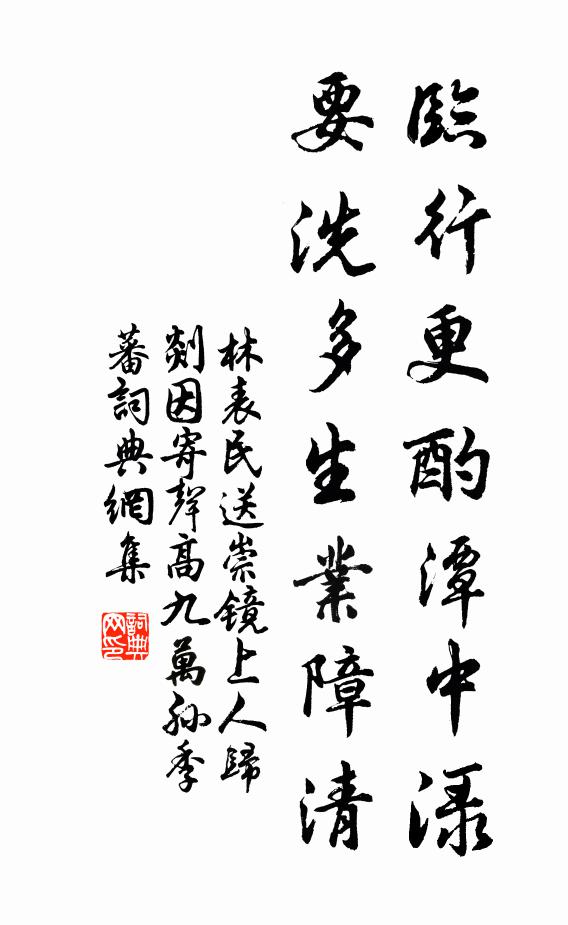 臨行更酌潭中淥
要洗多生業障清
林表民送崇鏡上人歸
剡因寄聲高九萬孫季
蕃詞典網集
詞典网印